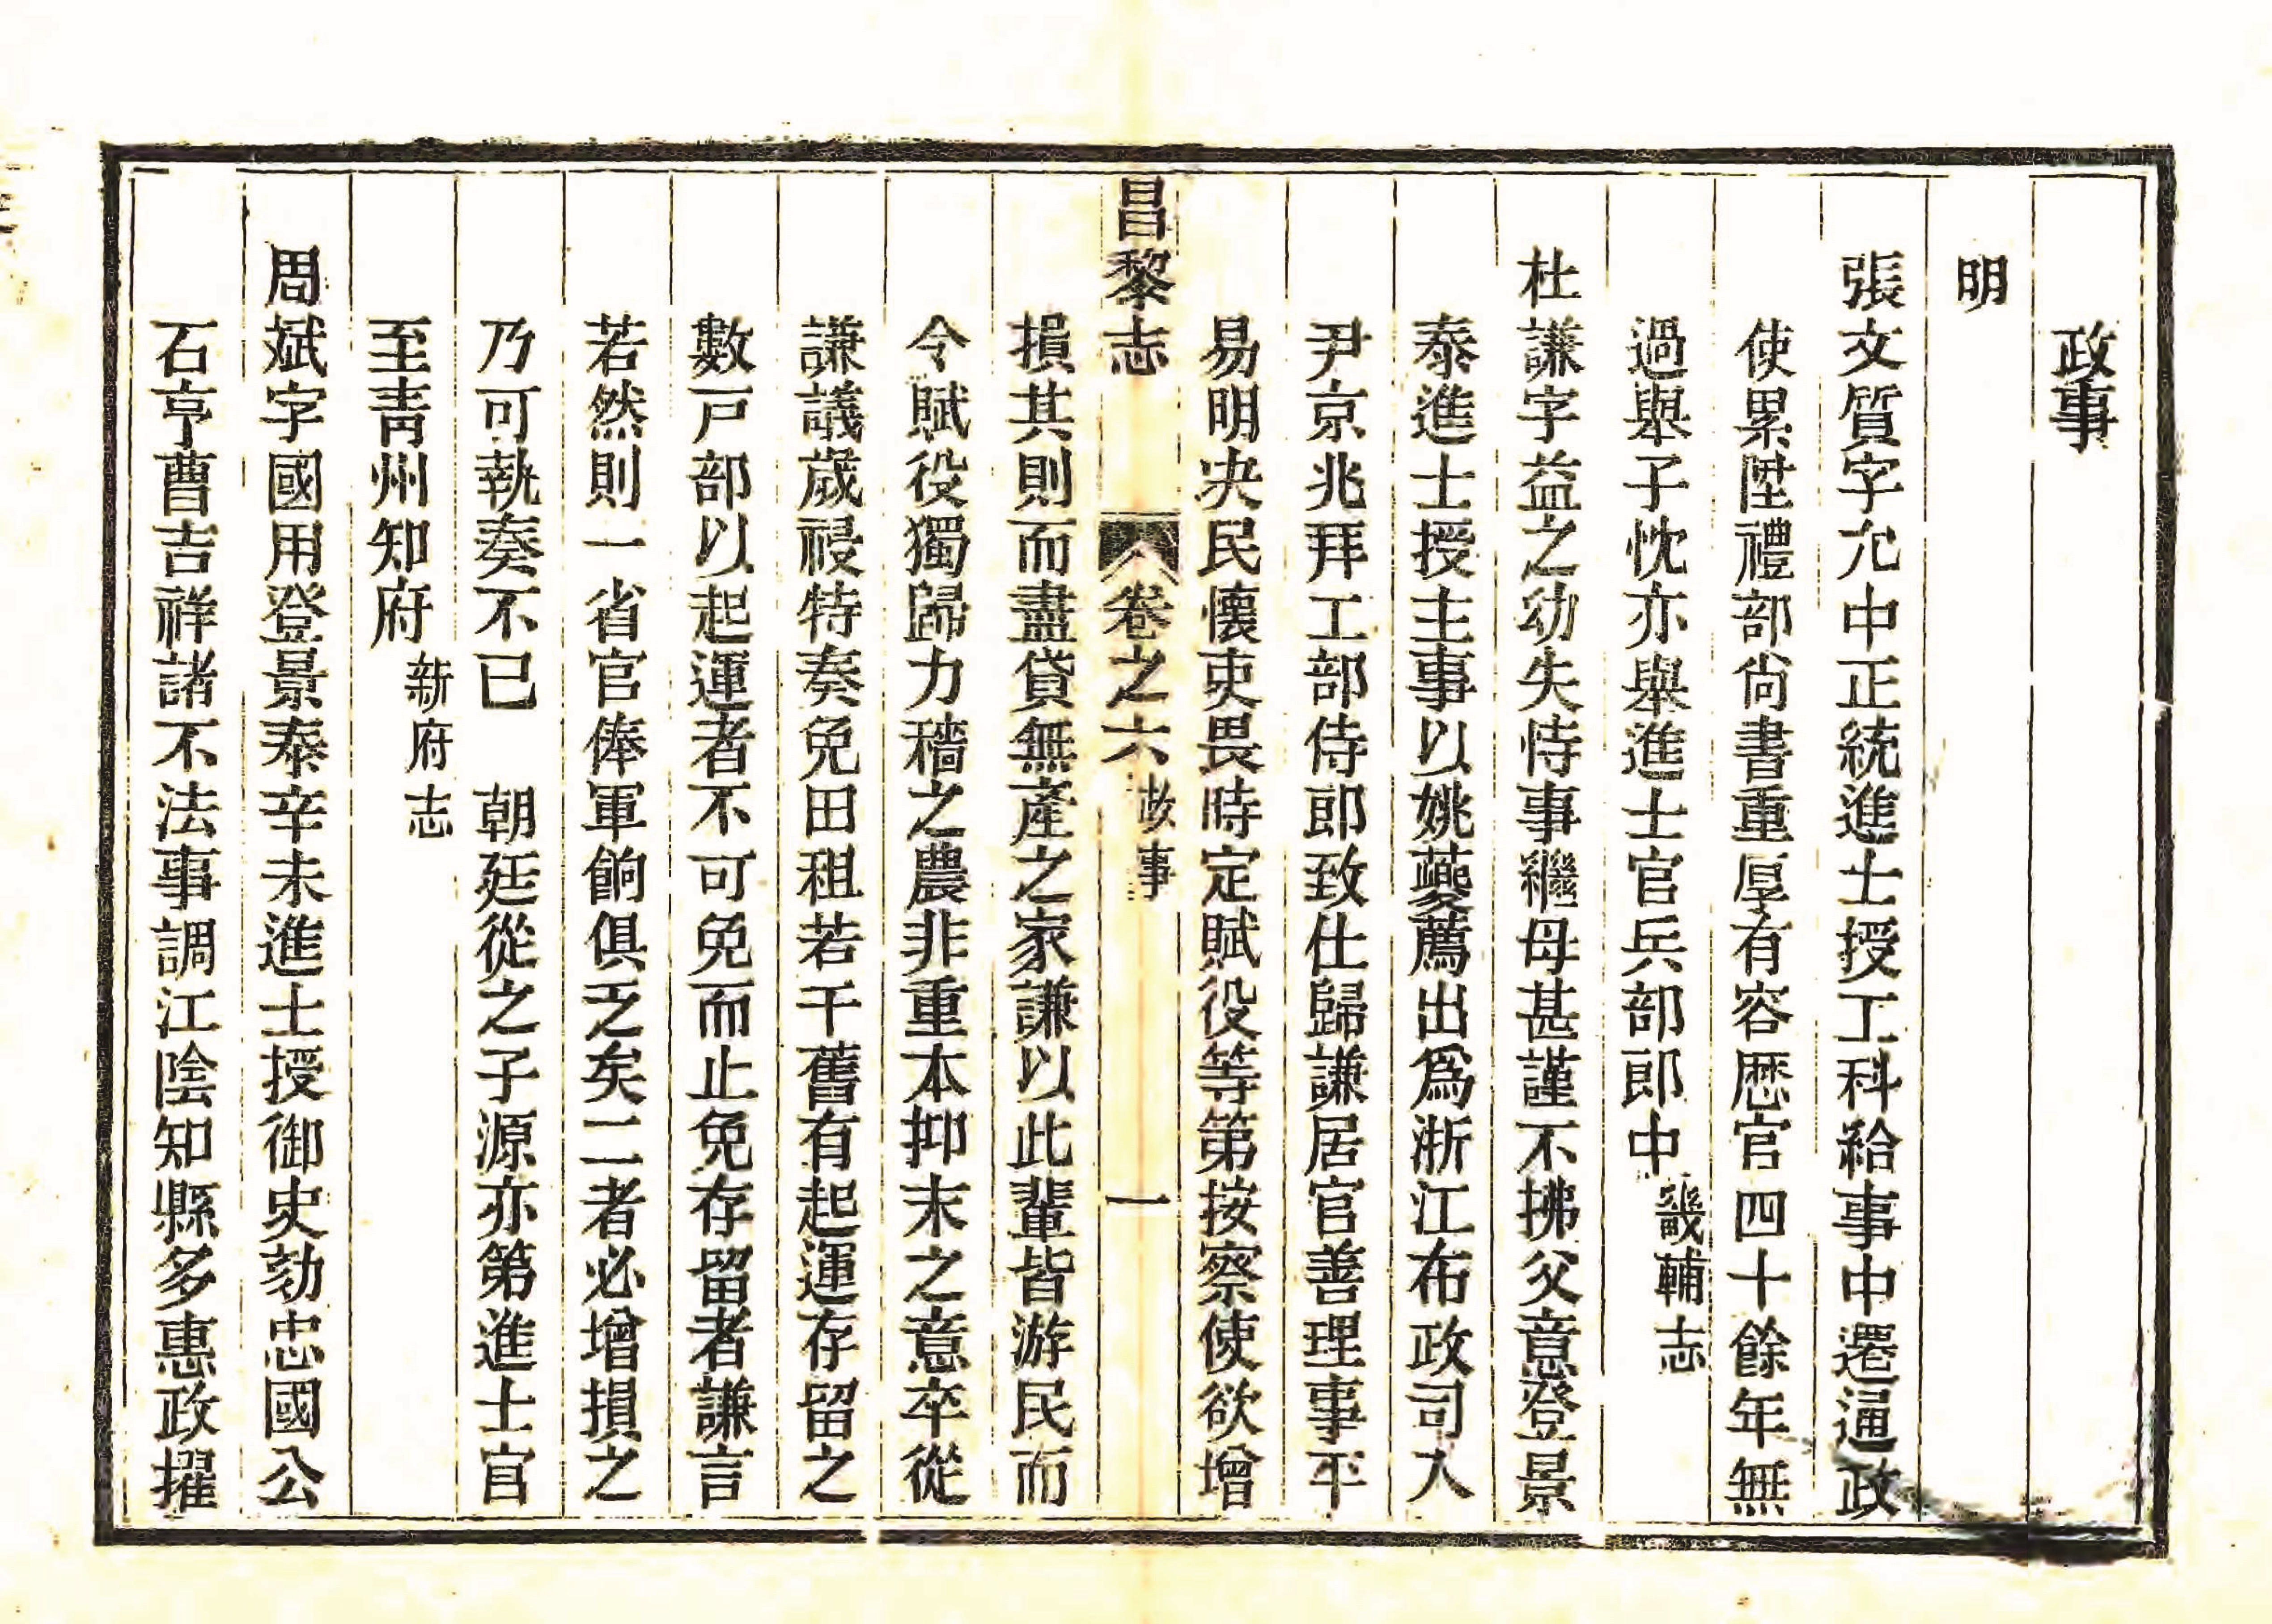 政事
明
張文質字允中正統進士授工科給事中遷通政
使累陞禮部尙書重厚有容歷官四十餘年無
過舉子忱亦舉進士官兵部郎中畿輔志
杜謙字益之幼失恃事繼母甚謹不拂父意登景
泰進士授主事以姚夔薦出爲浙江布政司入
尹京兆拜工部侍郎致仕歸謙居官善理事平
易明决民懷吏畏時定賦役等第按察使欲增
昌黎志 卷之六 政事 一
損其則而盡貸無產之家謙以此輩皆游民而
令賦役獨歸力穡之農非重本抑末之意卒從
謙議歲祲特奏免田租若干舊有起運存留之
數戸部以起運者不可免而止免存留者謙言
若然則一省官俸軍餉俱乏矣二者必增損之
乃可執奏不已 朝廷從之子源亦第進士官
至青州知府新府志
周斌字國用登景泰辛未進士授御史劾忠國公
石亨曹吉祥諸不法事調江陰知縣多惠政擢